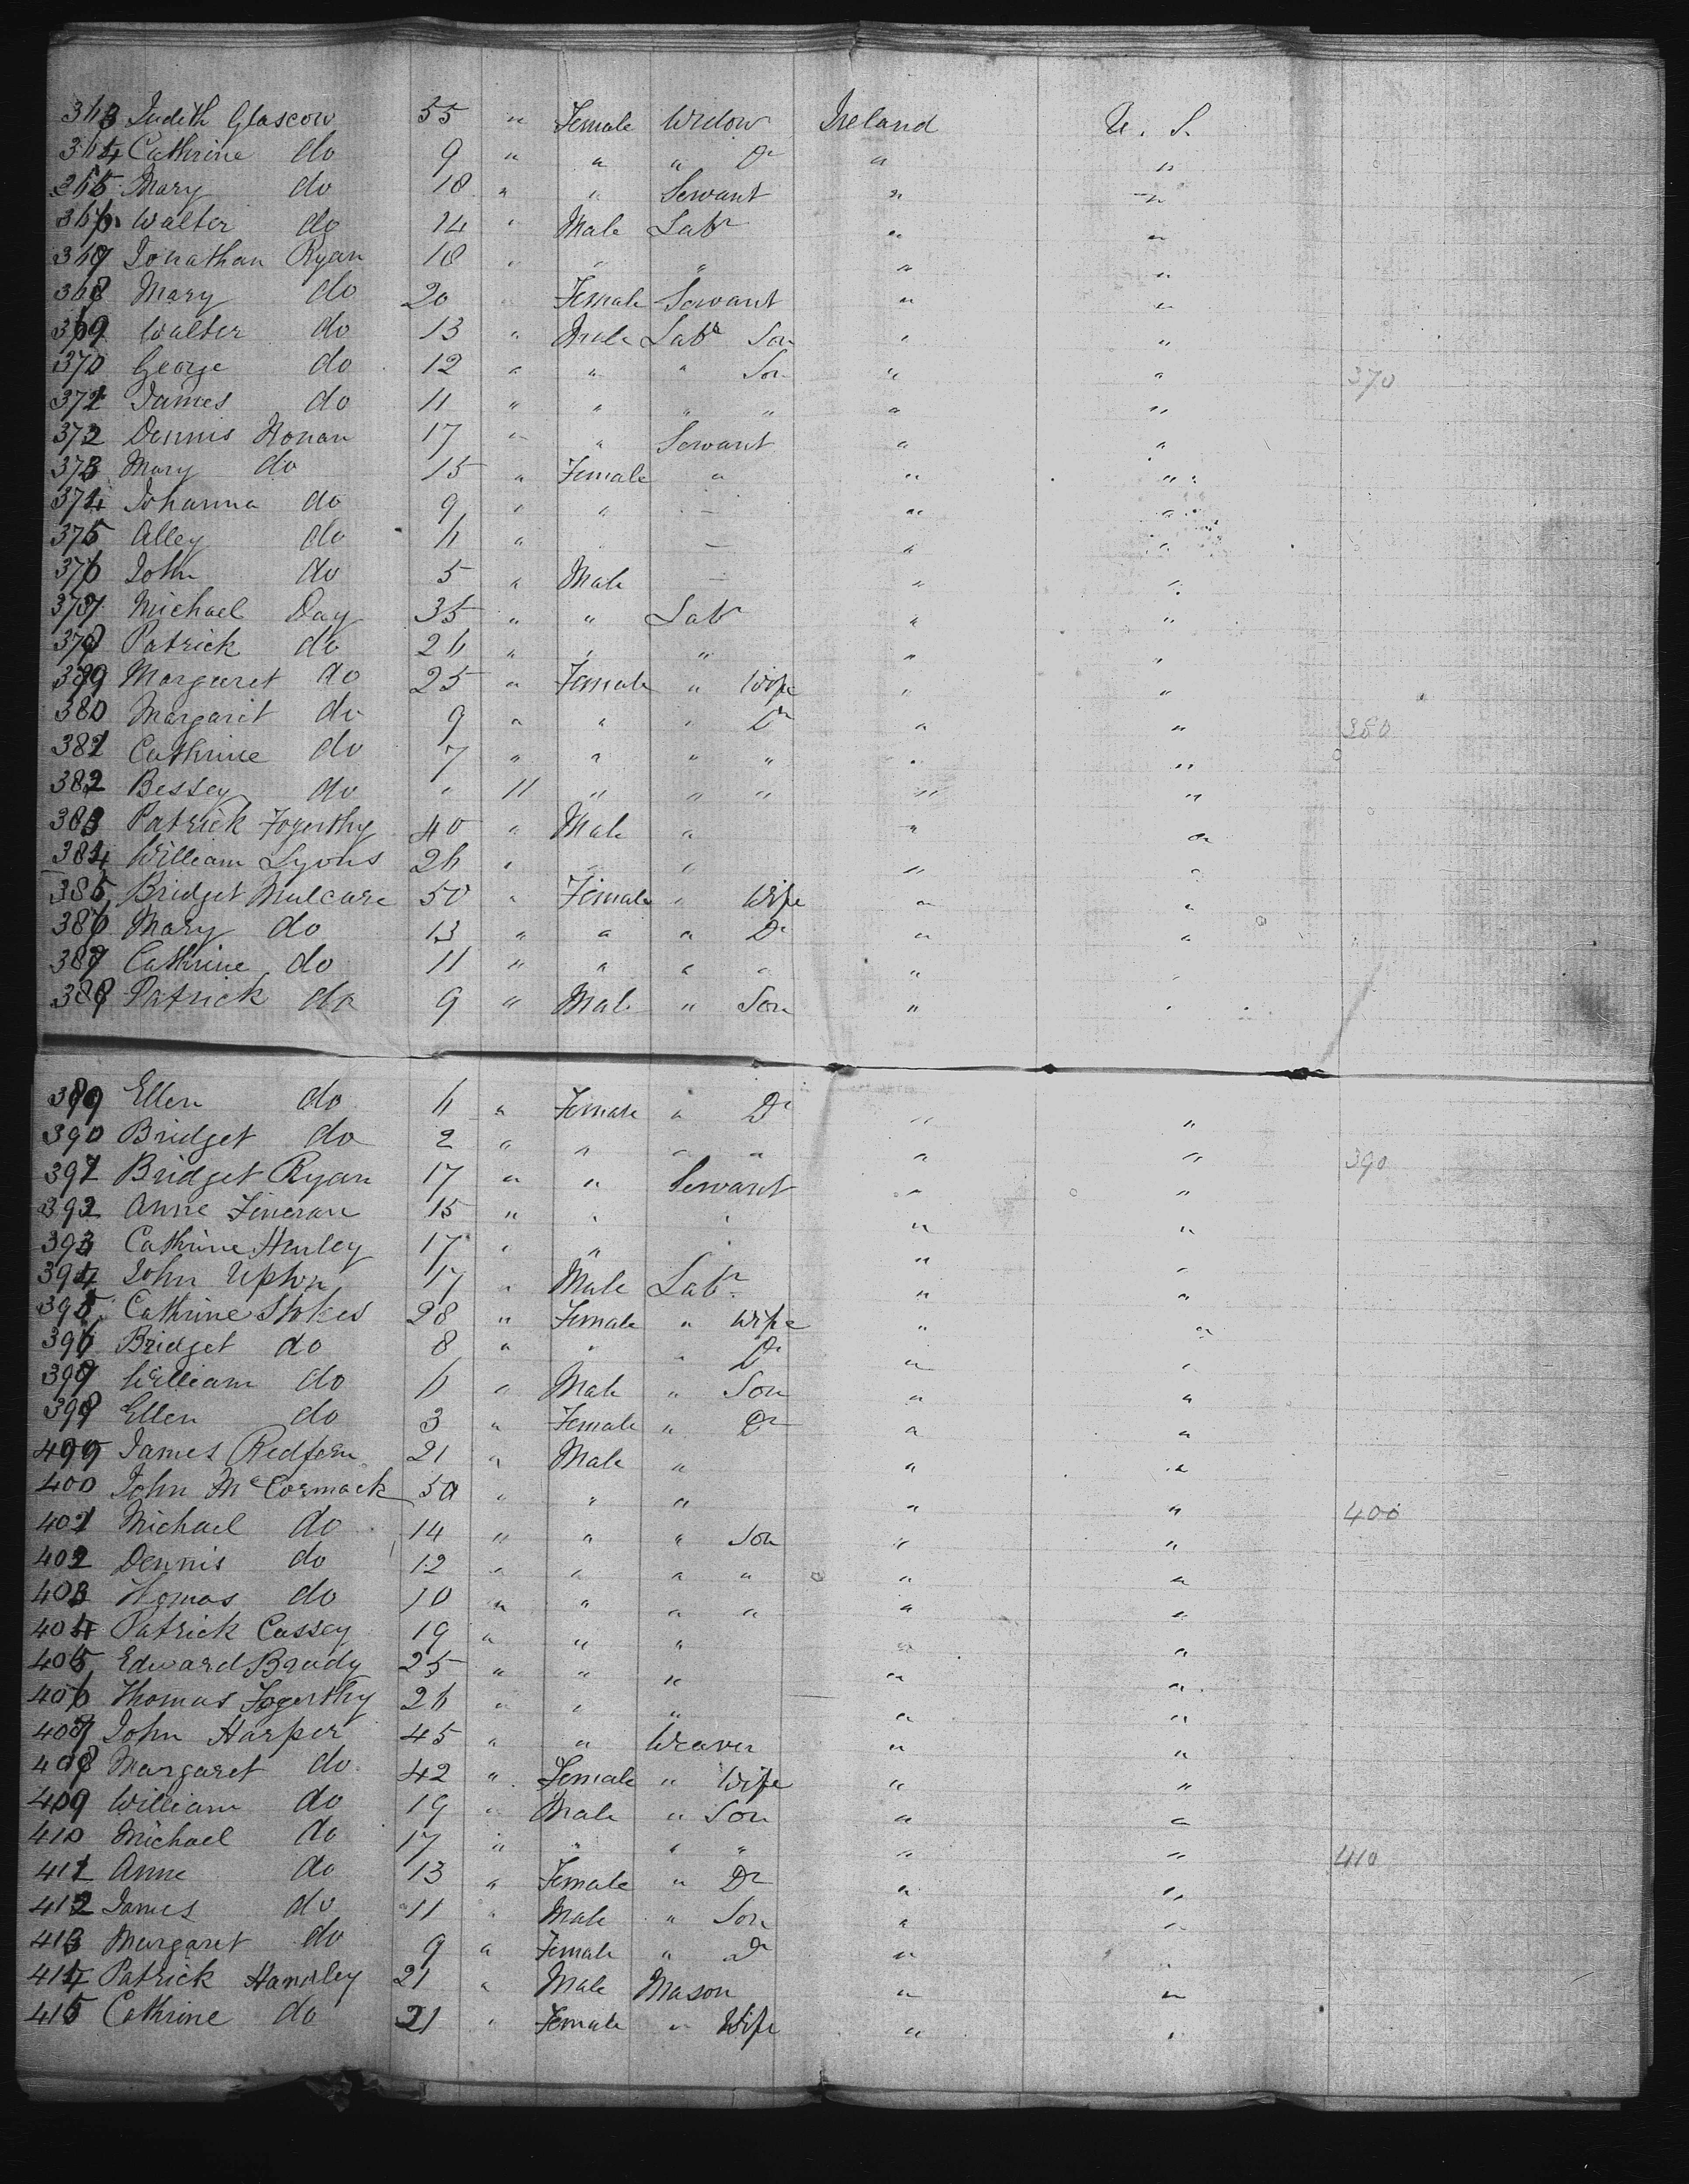 363 Judith Glascow 55 " Female Widow Ireland U. S.
364 Cathrine do 9 " " " Dr " "
365 Mary do 18 " " Servant " "
366 Walter do 14 " Male Labr " "
367 Jonathan Ryan 18 " " " " "
368 Mary do 20 " Female Servant " "
369 Walter do 13 " Male Labr Son " "
370 George do 12 " " " Son " " 370
371 James do 11 " " " " " "
372 Dennis Honan 17 " " Servant " "
373 Mary do 15 " Female " " "
374 Johanna do 9 " " - " "
375 Alley do 6 " - " "
376 John do 5 " Male - " "
377 Michael Day 35 " " Labr " "
378 Patrick do 26 " " " " "
379 Margaret do 25 " Female " Wife " "
380 Margarit do 9 " " " Dr " " 380
381 Cathrine do 7 " " " " " "
382 Bessey do " 11 " " " " "
383 Patrick Fogerthy 40 " Male " " "
384 William Lyons 26 " " " " "
385 Bridget Mulcare 50 " Female " Wife " "
386 Mary do 13 " " " Dr " "
387 Cathrine do 11 " " " " " "
388 Patrick do 9 " Male " Son " "
389 Ellen do 6 " Female " Dr " "
390 Bridget do 2 " " " " " " 390
391 Bridget Ryan 17 " " Servant " "
392 Anne Fineran 15 " " " " "
393 Cathrine Henley 17 " " " " "
394 John Upton 17 " Male Labr " "
395 Cathrine Stokes 28 " Female " Wife " "
396 Bridget do 8 " " " Dr " "
397 William do 6 " Male " Son " "
398 Ellen do 3 " Female " Dr " "
499 James Redfern 21 " Male " " "
400 John McCormack 50 " " " " " 400
401 Michael do 14 " " " Son " "
402 Dennis do 12 " " " " " "
403 Thomas do 10 " " " " " "
404 Patrick Cassey 19 " " " " "
405 Edward Brady 25 " " " " "
406 Thomas Fogerthy 26 " " " " "
407 John Harper 45 " " Weaver " "
408 Margaret do 42 " Female " Wife " "
409 William do 19 " Male " Son " "
410 Michael do 17 " " " " " " 410
411 Anne do 13 " Female " Dr " "
412 James do 11 " Male " Son " "
413 Margaret do 9 " Female " Dr " "
414 Patrick Handley 21 " Male Mason " "
415 Cathrine do 21 " Female " Wife " "